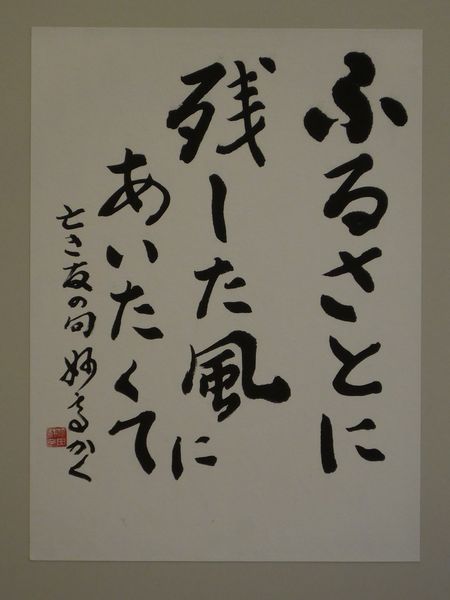 ふるさとに
残した風に
あいたくて
亡き友の句 妙高かく